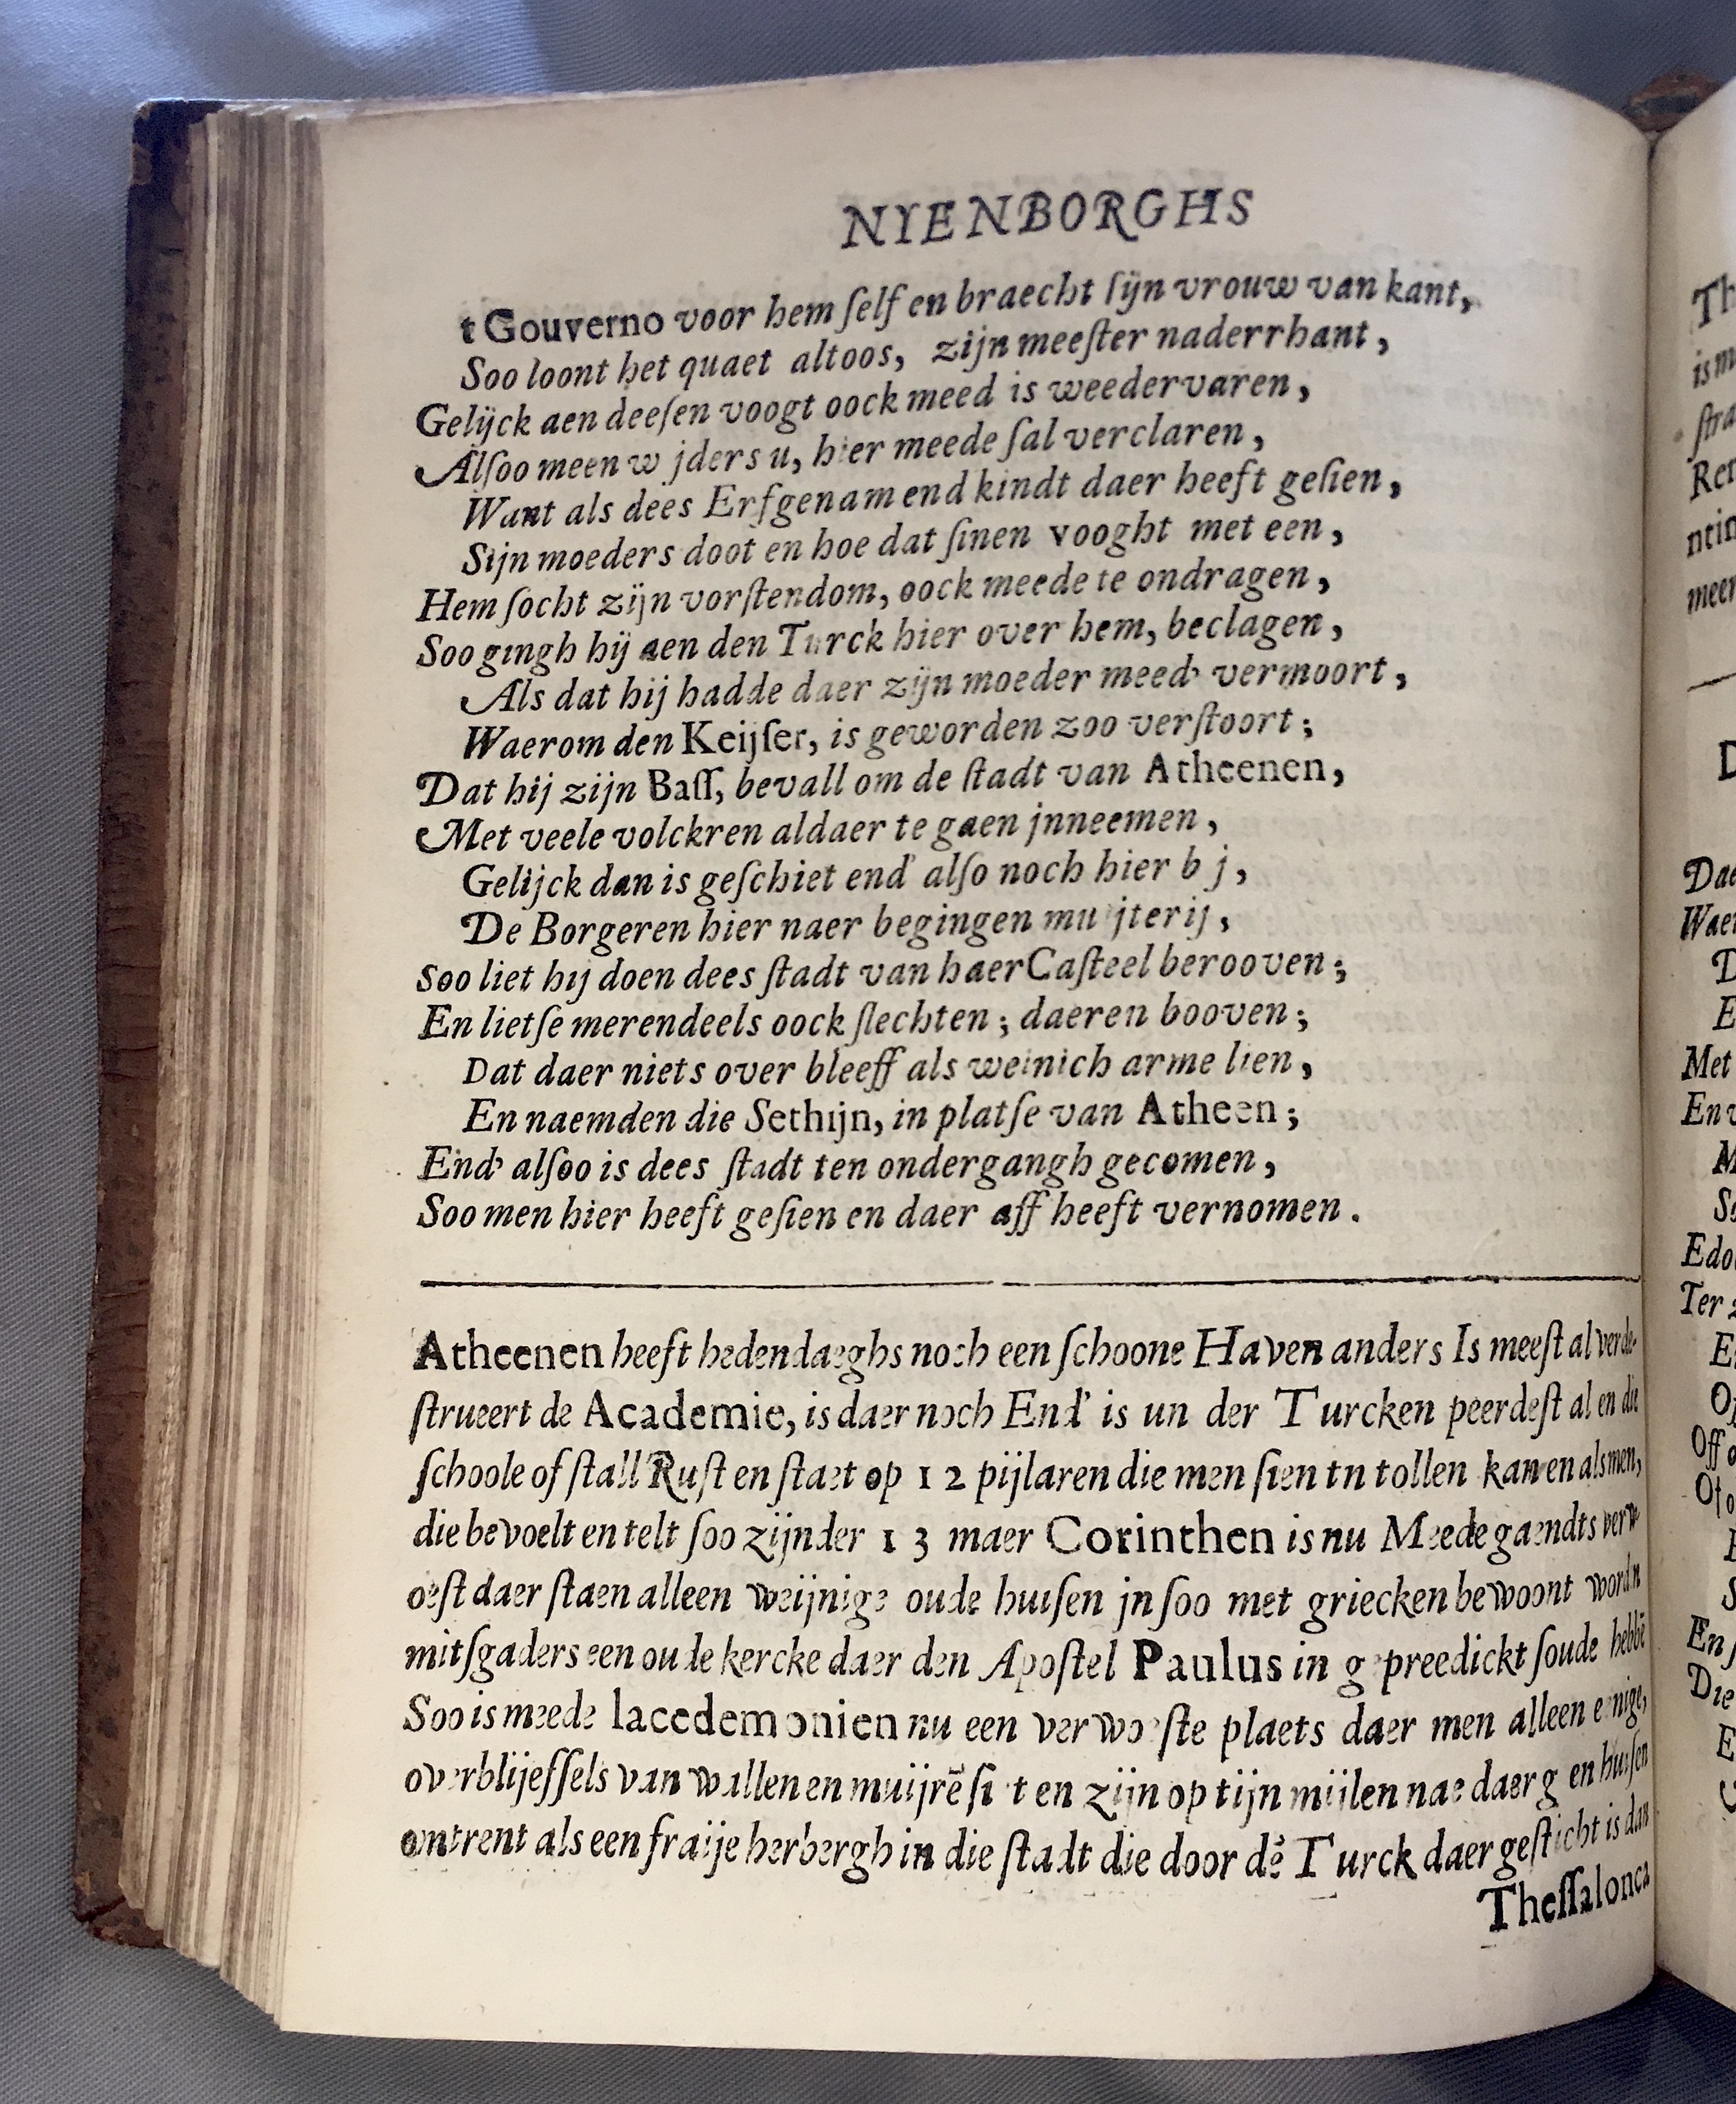 NYENBORGHS
t Gouverno voor hem ſelf en braecht ſijn vrouw van kant,
Soo loont het quaet altoos, zijn meeſter naderrhant,
Gelijck aen deeſen voogt oock meed is weedervaren,
Alſoo meen w jders u, hier meede ſal verclaren,
Want als dees Erfgenam end kindt daer heeft geſien,
Sijn moeders doot en hoe dat ſinen vooght met een,
Hem ſocht zijn vorſtendom, oock meede te ondragen,
Soo gingh hij aen den Turck hier over hem, beclagen,
Als dat hij hadde daer zijn moeder meed' vermoort,
Waerom den Keijſer, is geworden zoo verſtoort;
Dat hij zijn Baſſ, bevall om de ſtadt van Atheenen,
Met veele volckren aldaer te gaen jnneemen,
Gelijck dan is geſchiet end' alſo noch hier b j,
De Borgeren hier naer begingen mu jterij,
soo liet hij doen dees ſtadt van haer Caſteel berooven;
En lietſe merendeels oock ſlechten; daeren booven;
Dat daer niets over bleeff als weinich arme lien,
En naemden die Sethijn, in platſe van Atheen;
End' alſoo is dees ſtadt ten ondergangh gecomen,
Soo men hier heeft geſien en daer aff heeft vernomen.
Atheenen heeft hedendaeghs noch een ſchoone Haven anders Is meeſt al verde-
ſtrueert de Academie, is daer noch End' is un der Turcken peerdeſt al en die
ſchoole of ſtall Ruſt en ſtaet op 12 pijlaren die men ſien tn tollen kan en als men,
die bevoelt en telt ſoo zijnder 13 maer Corinthen is nu Meede gaendts verw-
oeſt daer ſtaen alleen weijnige oude huiſen jn ſoo met griecken bewoont wordn
mitſgaders een oude kercke daer den Apoſtel Paulus in g preedickt ſoude hebbē
Soo is meede lacedemonien nu een verwoeſte plaets daer men alleen enige,
overblijefſels van wallen en muijrē ſi t en zijn op tijn mijlen nae daer g en huiſen
omtrent als een fraije herbergh in die ſtadt die door dē Turck daer geſticht is dan
Theſſalonca